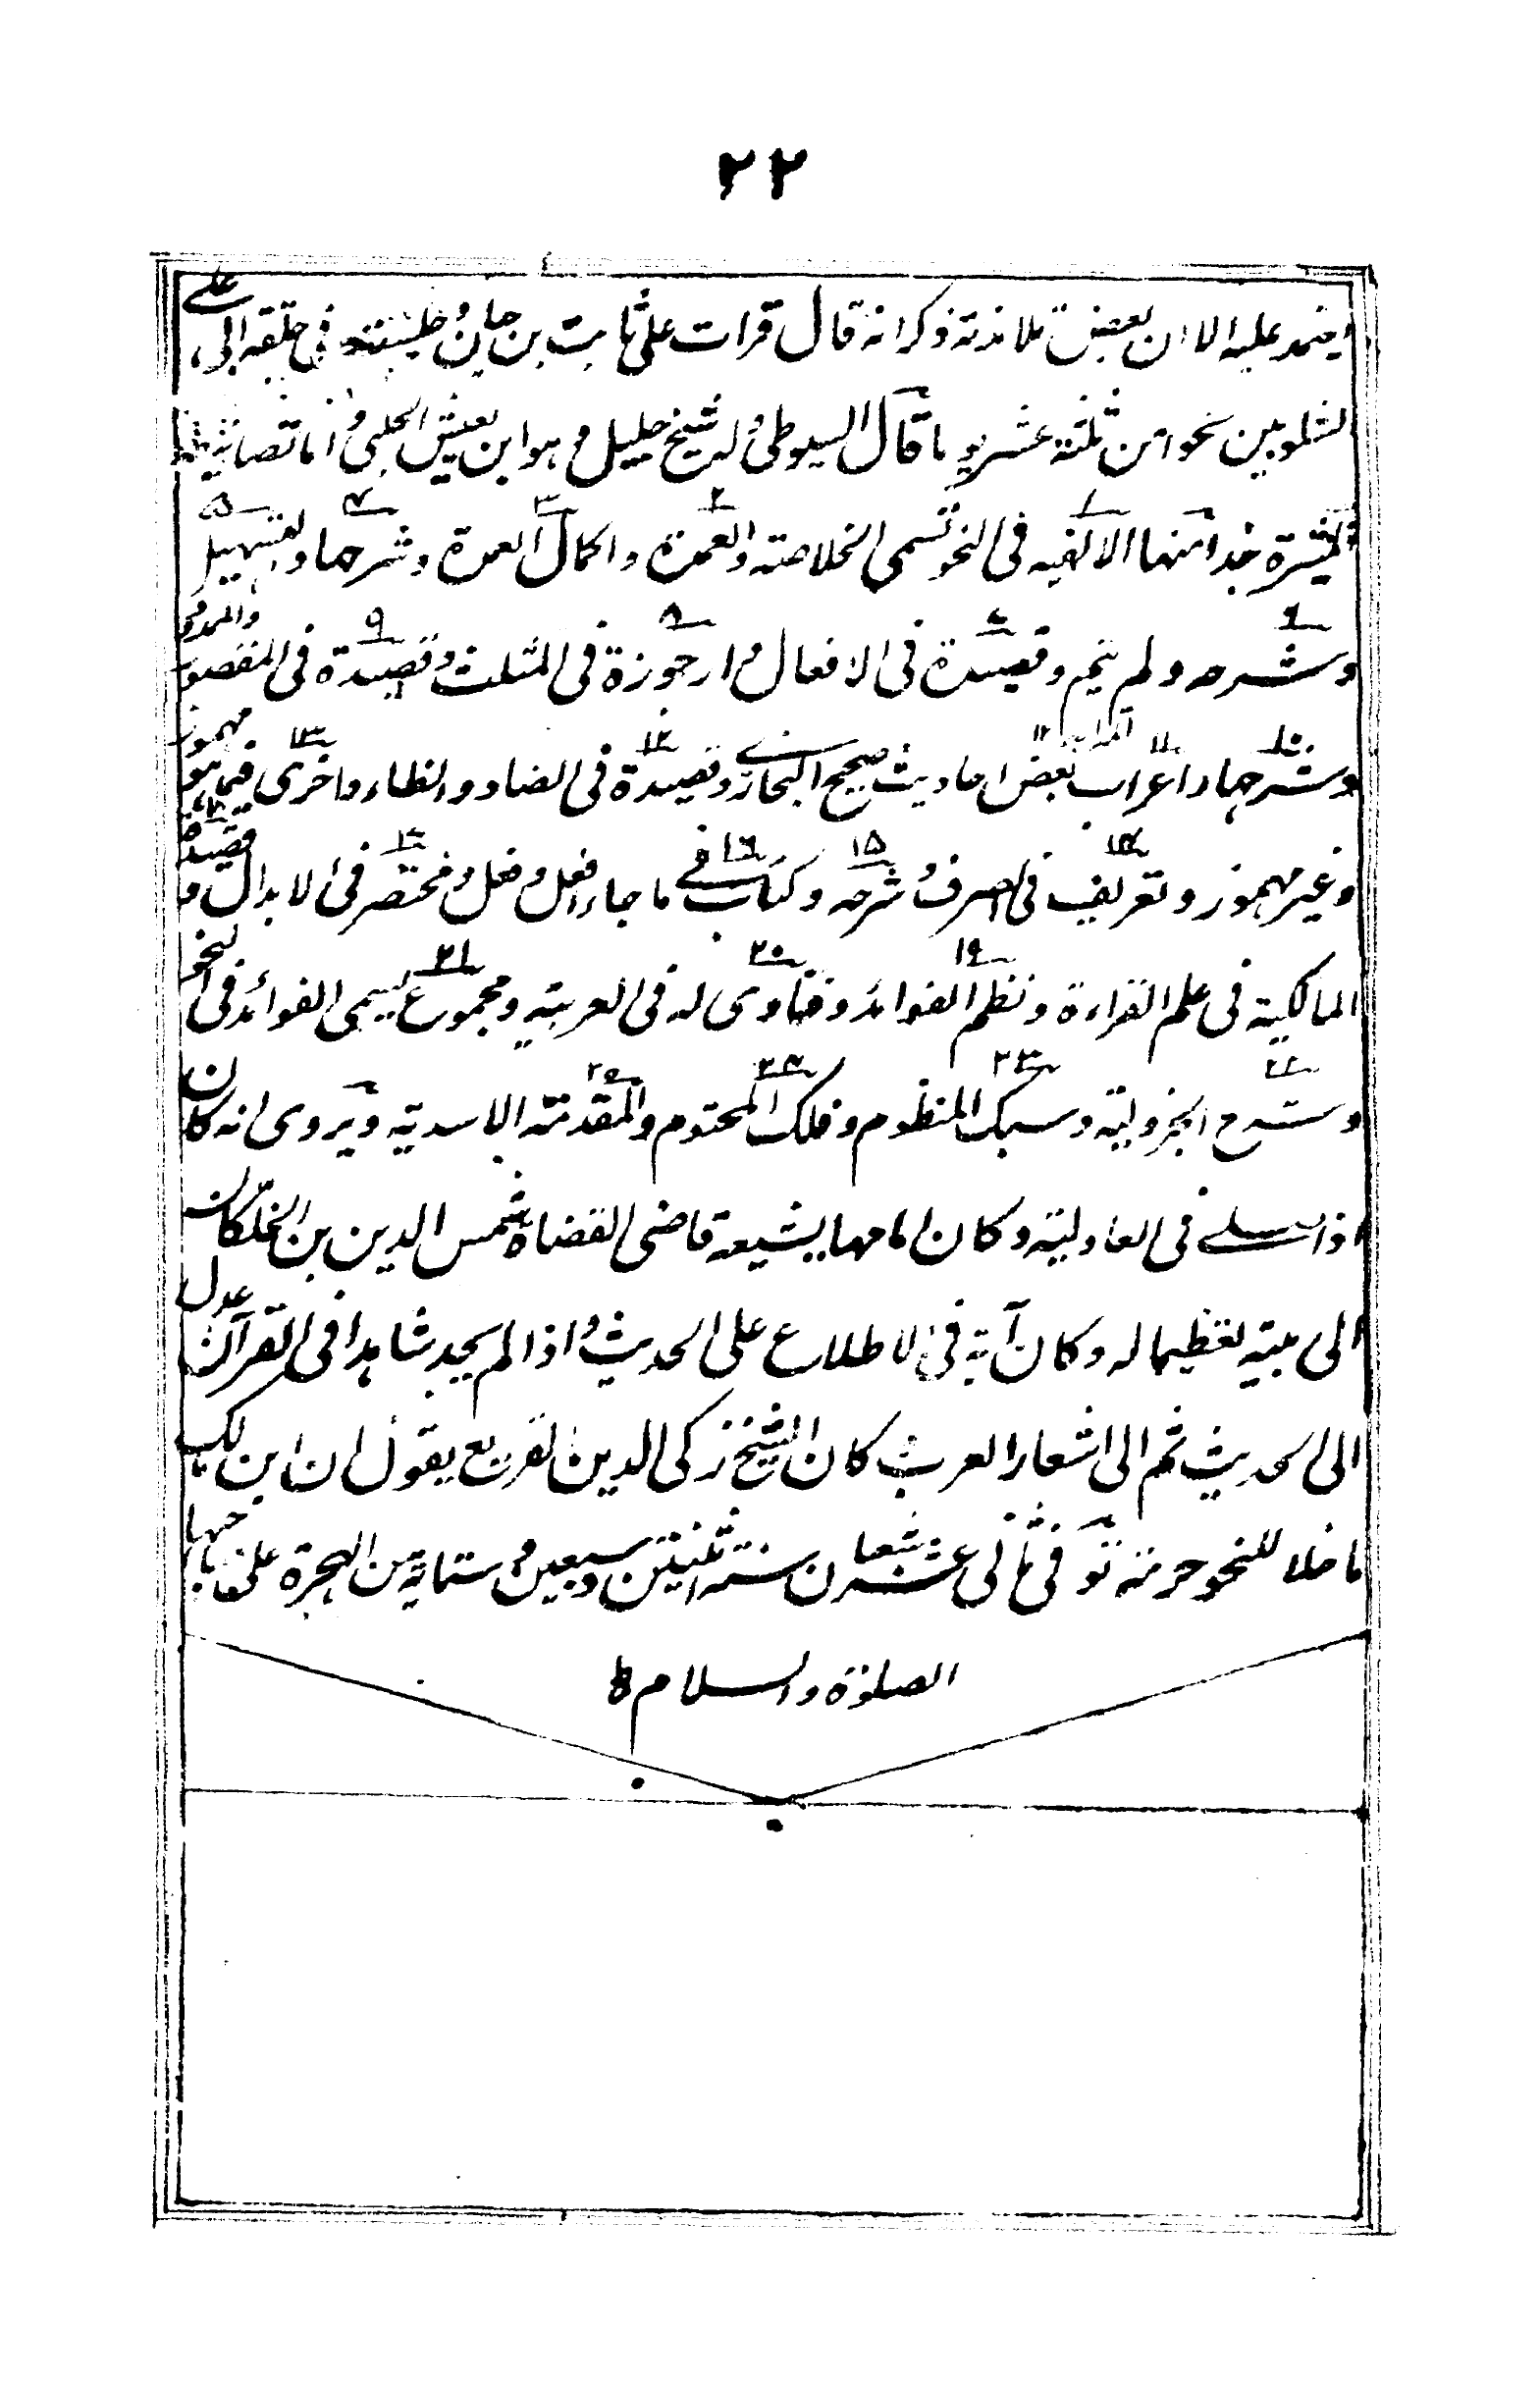 ٢٢
يعتمد عليه الا ان بعض تلامذته ذكر انه قال قرات على ثابت بن حيان وجلست في حلقة ابي على
الشلوبين نحوا من ثلثة عشر يوما قال السيوطي وله شيخ جليل وهو ابن يعيش الحلبي واما تصانيفه
كثيرة جدا منها الالفيه فى النحو تسمى الخلاصته والعمدة واكمال العمدة وشرحها والتسهيل
وشرحه ولم يتم وقصيدة فى الافعال وارجوزة فى المثلث وقصيدة فى المقصور والممدود
وشرحها واعراب بعض احاديث صحيح البخارى وقصيدة فى الضاد والظاء واخرى فيما هو مهموز
وغير مهموز وتعريف فى الصرف وشرحه وكتاب فى ما جاء افعل وفعل ومختصر فى الابدال وقصيدة
المالكية فى علم القراءة ونظم الفوائد وفتاوى له فى العربية ومجموع يسمى الفوائد فى النحو
وشرح الجزولية وسبك المنظوم وفك المختوم والمقدمة الاسدية ويروى انه كان
اذا صلى فى العادلية وكان امامها يشيعه قاضى القضاة شمس الدين بن الخلكان
الى بيته تعظيما له وكان آية فى الاطلاع على الحديث واذا لم يجد شاهدا فى القرآن عدل
الى الحديث ثم الى اشعار العرب كان الشيخ زكى الدين يقول ان ابن مالك
ما خلا للنحو حرمته توفى ثانى عشر شعبان سنة اثنتين وسبعين وستمائة من الهجرة على صاحبها
الصلوة والسلام